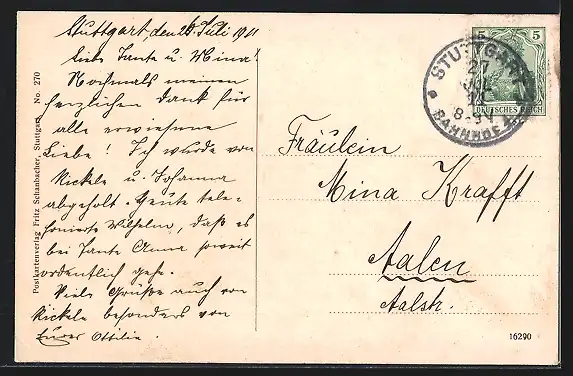 Stuttgart, den 26. Juli 1911
Liebe Tante u. Mina!
Nochmals meinen
herzlichen Dank für
alle erwiesene
Liebe! Ich wurde von
Rickele u. Johanna
abgeholt. Heute tele-
fonierte Wilhelm, daß es
bei Tante Anna soweit
ordentlich gehe.
Viele Grüße auch von
Rickele besonders von
Eurer Ottilie.
Postkartenverlag Fritz Schanbacher, Stuttgart. No. 270
5 5
DEUTSCHES REICH
STUTTGART
27
JUL
11
8-9V
BAHNHOF
Fräulein
Mina Krafft
Aalen
Aalstr.
16290